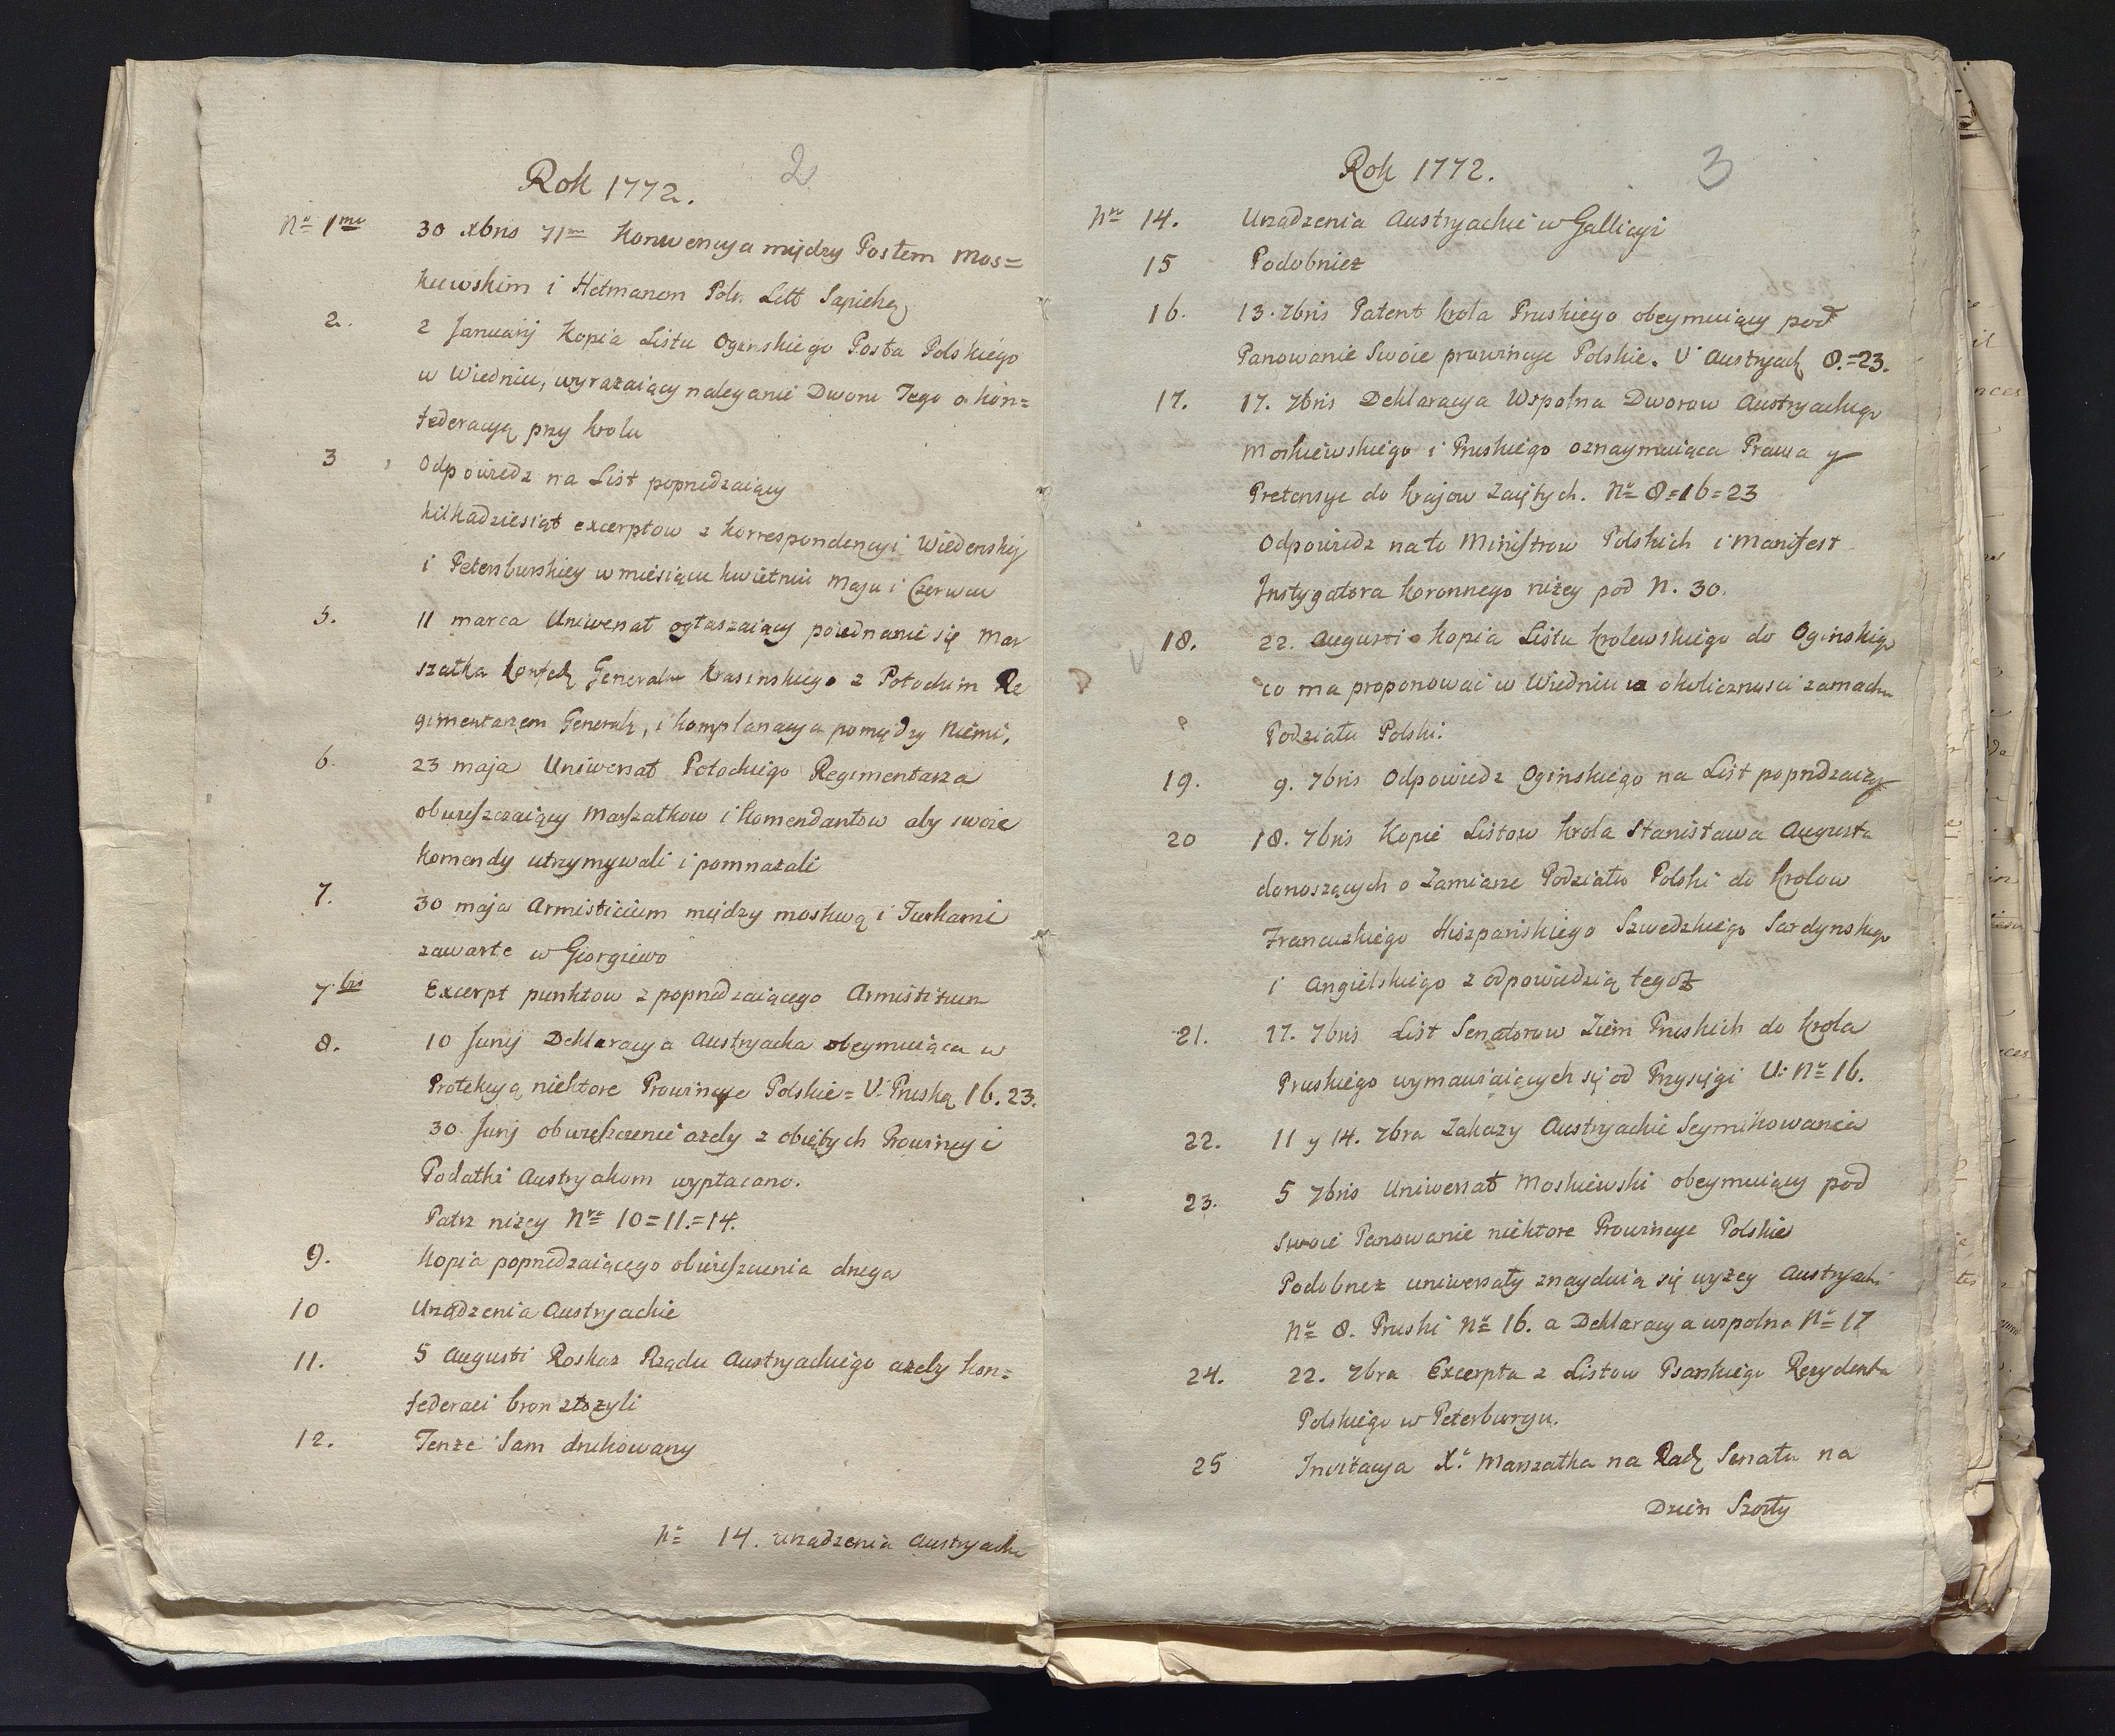 Rok 1772.
2
Nº 1mo 30 xbris 71mo Konwencya między Posłem Mos=
kiewskim i Hetmanem Poln Litt Sapiehą
2. 2 Januarij Kopia Listu Oginskiego Posła Polskiego
w Wiedniu, wyrażaiący naleganie Dworu Tego o kon=
federacyą przy krolu
3 Odpowiedz na List poprzedzaiący
kilkadziesiąt excerptow z korrespondencyi Wiedenskiey
i Petersburskiey w miesiącu kwietniu Maju i Czerwcu
5. 11 marca Uniwersał ogłaszaiący poiednanie się Mar
szałka Konfed Generalne Krasinskiego z Potockim Re
gimentarzem Generaln, i komplanacya pomiędzy Niemi,
6. 23 maja Uniwersał Potockiego Regimentarza
obwieszczaiący Marszałkow i Komendantow aby swoie
Komendy utrzymywali i pomnażali
7. 30 maja Armisticium między moskwą i Turkami
zawarte w Giorgiewo
7 bis Excerpt punktow z poprzedzaiącego Armistitium
8. 10 Junij Deklaracya Austryacka obeymuiąca w
Protekcyą niektore Prowincye Polskie = V. Pruską 16. 23.
30 Junij obwieszczenie ażeby z obiętych Prowincyi
Podatki Austryakom wypłacano.
Patrz niżey Nro 10=11.=14.
9. Kopia poprzedzaiącego obwieszczenia druga
10 Urządzenia Austryackie
11. 5 Augusti Roskaz Rządu Austryackiego ażeby kon=
federaci bron złozyli
12. Tenże Sam drukowany
Nº 14. urządzenia Austryackie
Rok 1772.
3
Nro 14. Urządzenia Austryackie w Gallicyi
15 Podobnież
16. 13. 7bris Patent krola Pruskiego obeymuiący pod
Panowanie Swoie prowincye Polskie. V Austryack 8.=23.
17. 17. 7bris Deklaracya Wspolna Dworow Austryackiego
Moskiewskiego i Pruskiego oznaymuiąca Prawa y
Pretensye do krajow zaiętych. Nº 8=16=23
Odpowiedz na to Ministrow Polskich i Manifest
Instygatora koronnego niżey pod N. 30.
18. 22. Augusti Kopia Listu krolewskiego do Oginskiego
co ma proponować w Wiedniu w okoliczności zamachu
Podziału Polski:
19. 9. 7bris Odpowiedz Oginskiego na List poprzedzaiący
20 18. 7bris Kopie Listow Krola Stanisława Augusta
donoszących o Zamiarze Podziału Polski do Krolow
Francuzkiego Hiszpańskiego Szwedzkiego Sardynskiego
i Angielskiego z odpowiedzią tegoż
21. 17. 7bris List Senatorow Ziem Pruskich do krola
Pruskiego wymawiaiących się od Przysięgi V: Nº 16.
22. 11 y 14. 7bra Zakazy Austryackie Seymikowania
23. 5 7bris Uniwersał Moskiewski obeymuiący pod
Swoie Panowanie niektore Prowincye Polskie
Podobneż uniwersały znayduią się wyżey Austryacki
Nº 8. Pruski Nº 16. a Deklaracya wspolna Nº 17
24. 22. 7bra Excerpta z Listow Psarskiego Rezydenta
Polskiego w Peterburgu.
25 Invitacya X. Marszałka na Radę Senatu na
Dzien Szosty